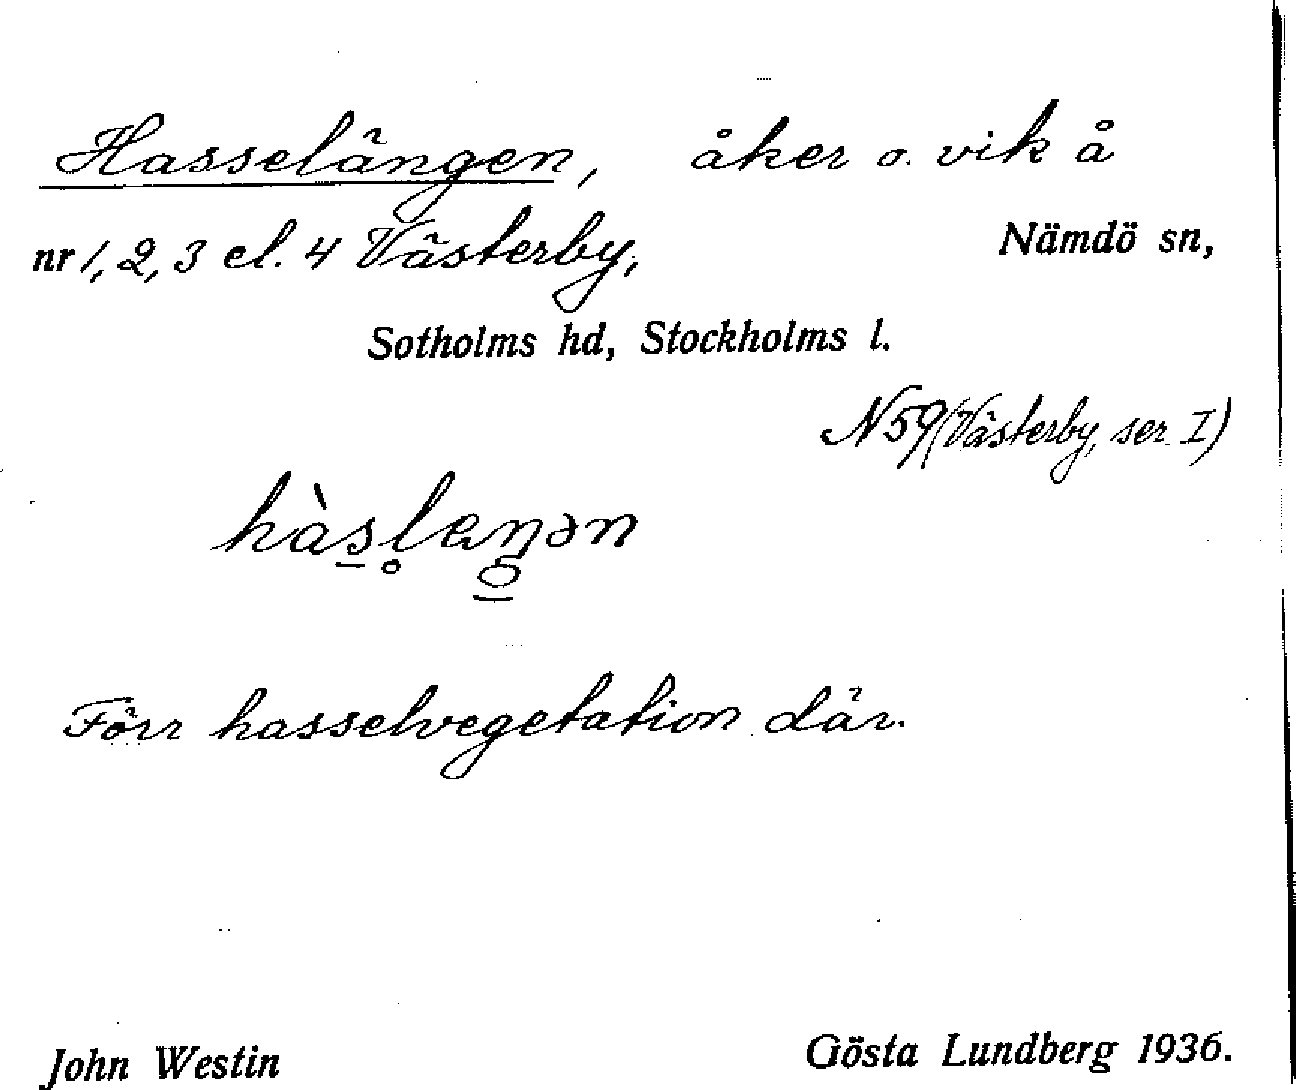 Hasselängen, åker o. vik å
nr 1, 2, 3 el. 4 Västerby, Nämdö sn,
Sotholms hd, Stockholms l.
N59 (Västerby, ser. I)
hàs̠l̥aŋ̠ən
Förr hasselvegetation där.
John Westin Gösta Lundberg 1936.